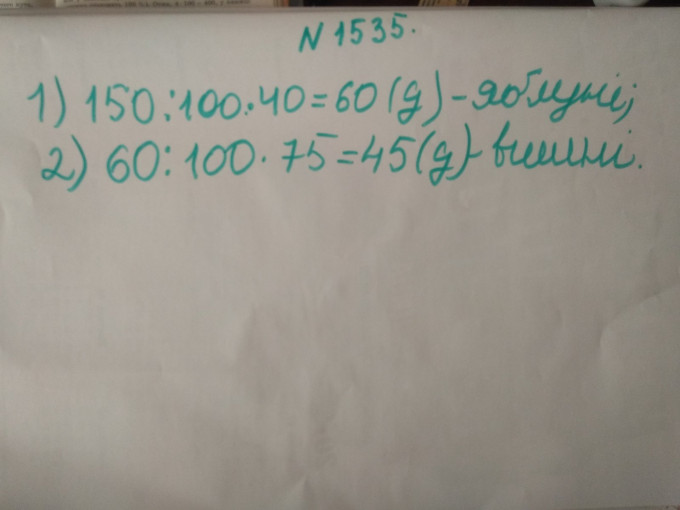 N 1535.
1) 150:100·40=60(д)-яблуні;
2) 60:100·75=45(д)-вишні.